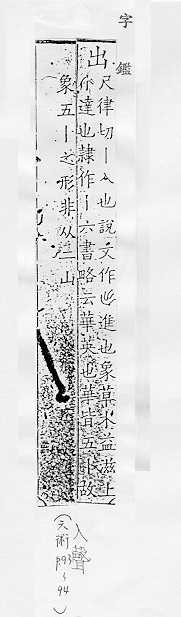 字鑑
出 尺律切丨入也說文作㞢進也象草木益滋上
出達也隸作丨六書略云華英也華皆五出故
象五丨之形非从二山
入聲
(六術 p93~94)